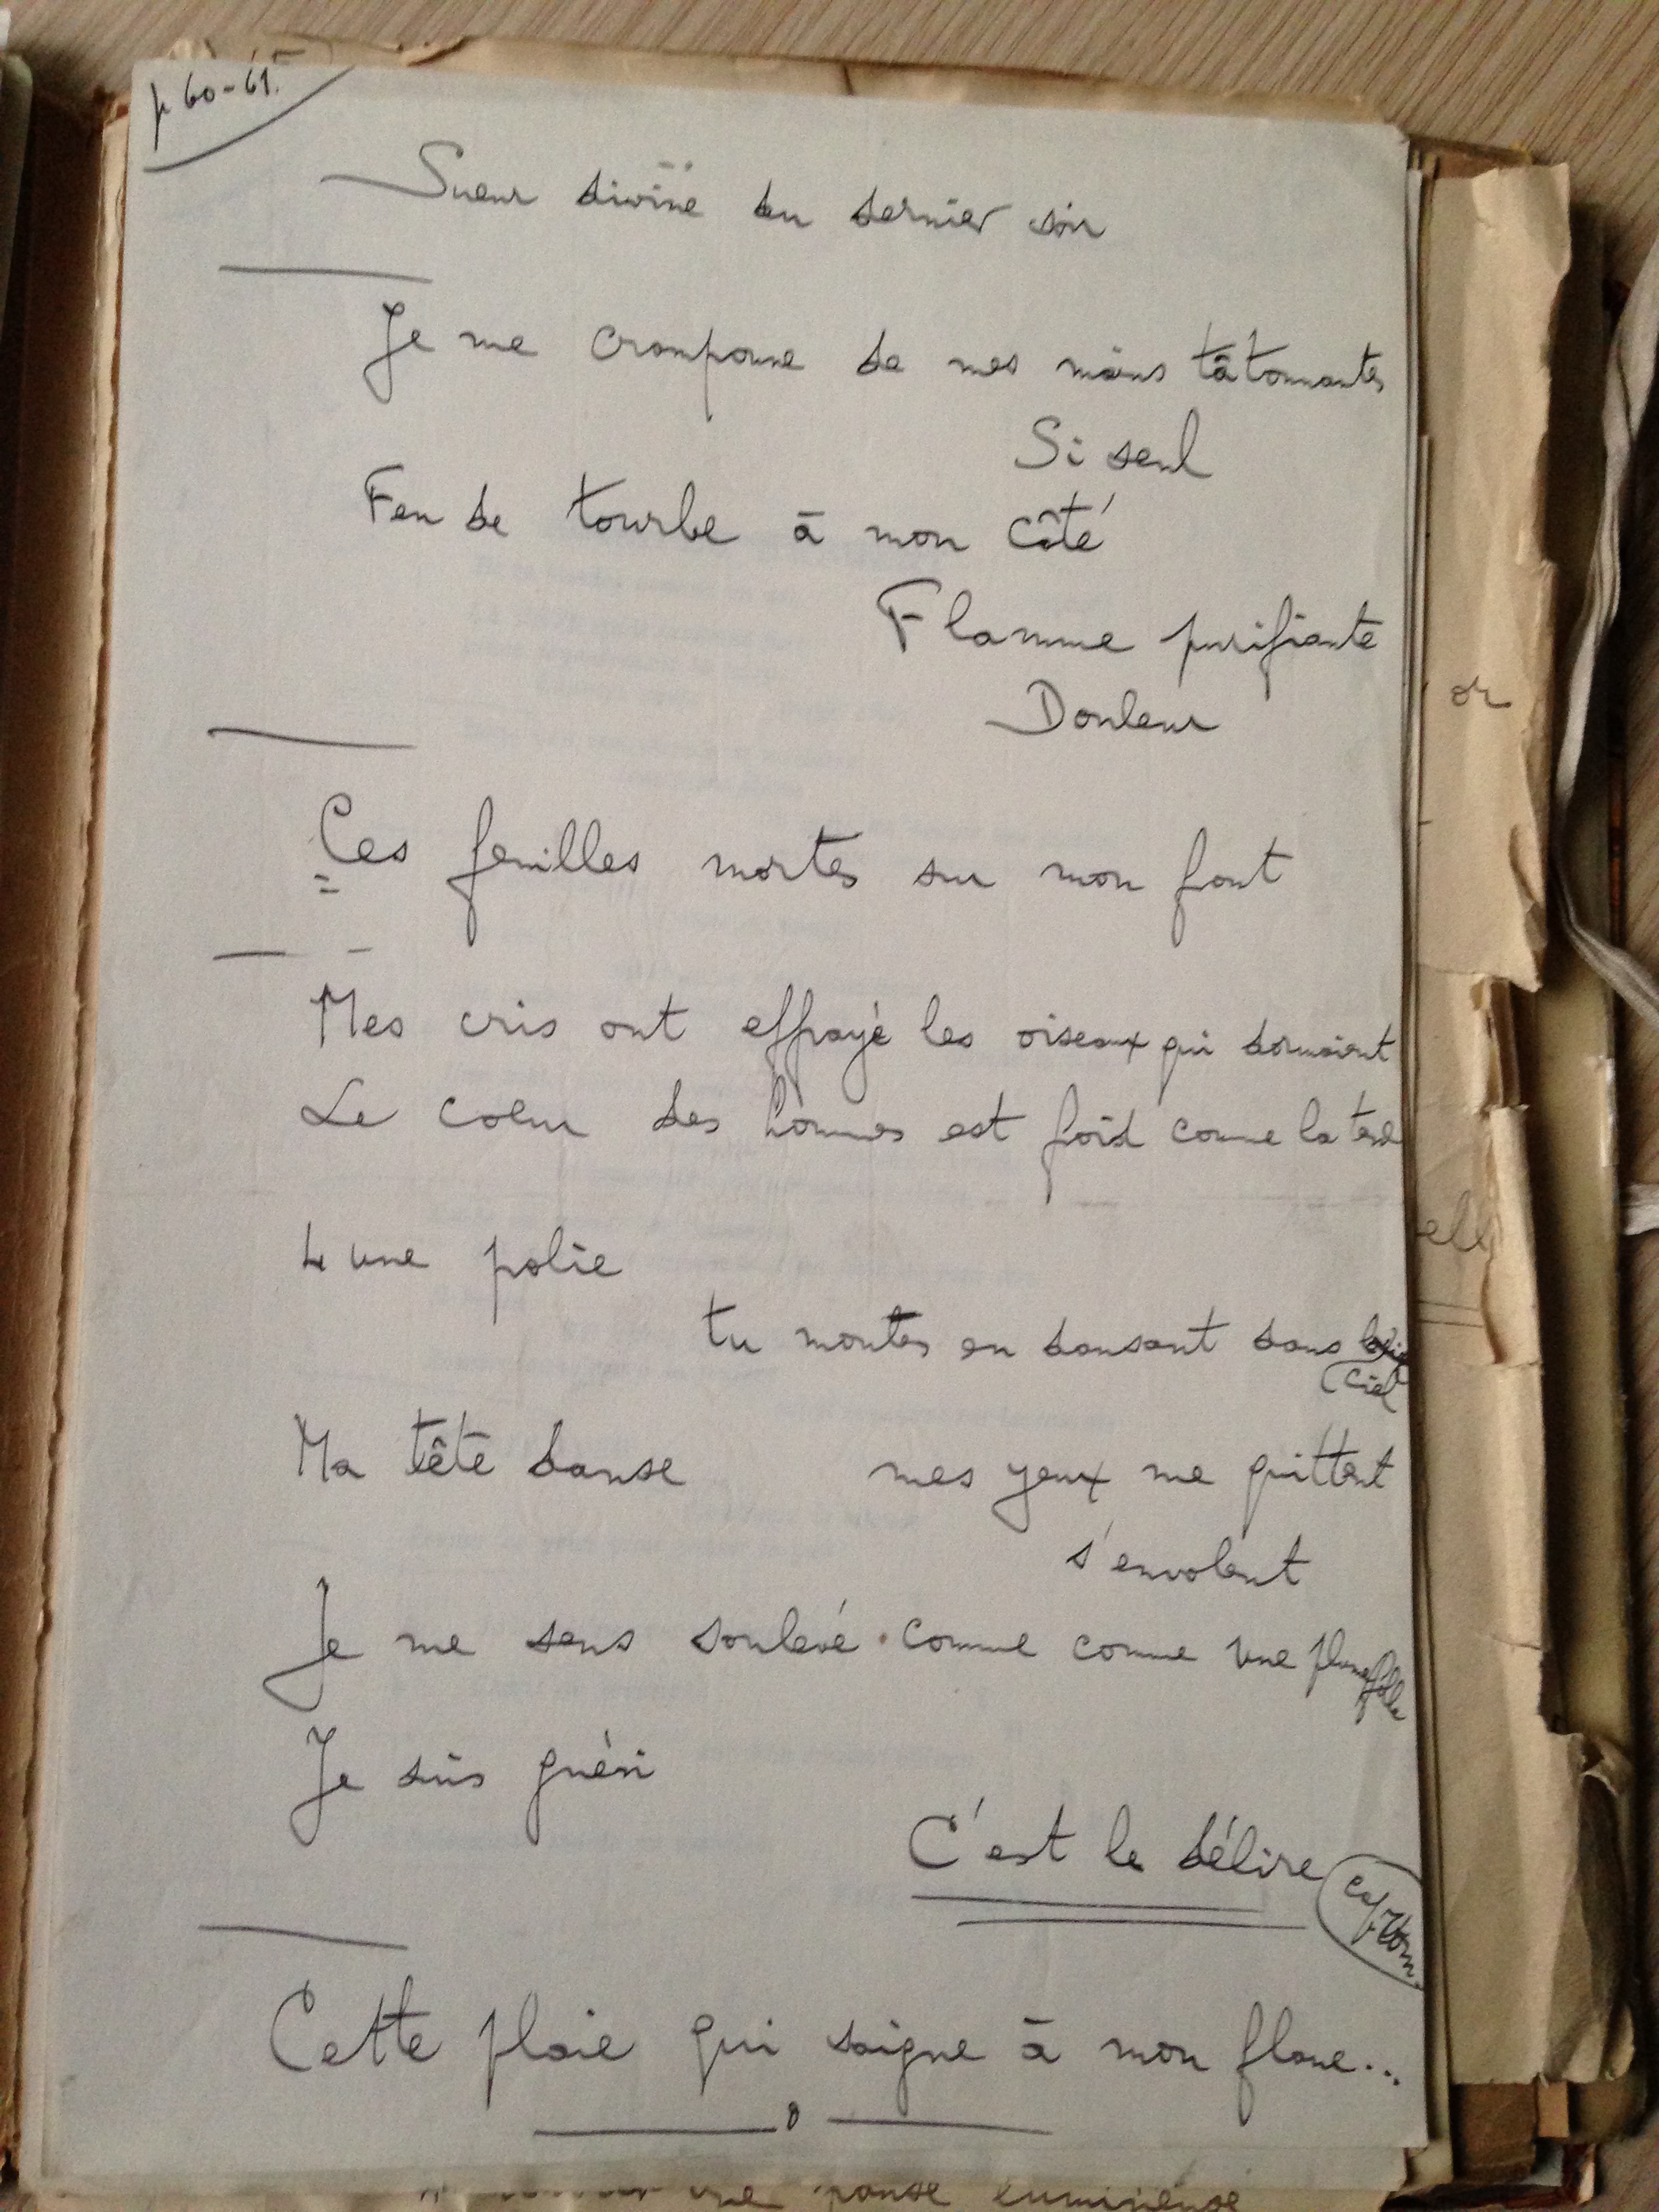 p 60-61.
Sueur divine du dernier soir
Je me cramponne de mes mains tâtonnantes
Si seul
Feu de tourbe à mon côté
Flamme purifiante
Douleur
Ces feuilles mortes sur mon front
Mes cris ont effrayé les oiseaux qui dormaient
Le coeur des hommes est froid comme la
une folie
tu montes en dansant dans le
Ciel
Ma tête danse mes yeux me quittent
s'envolent
Je me sens soulevé comme comme une
Je suis guéri
C'est le délire
Cette plaie qui saigne à mon flanc...
elle
er
une